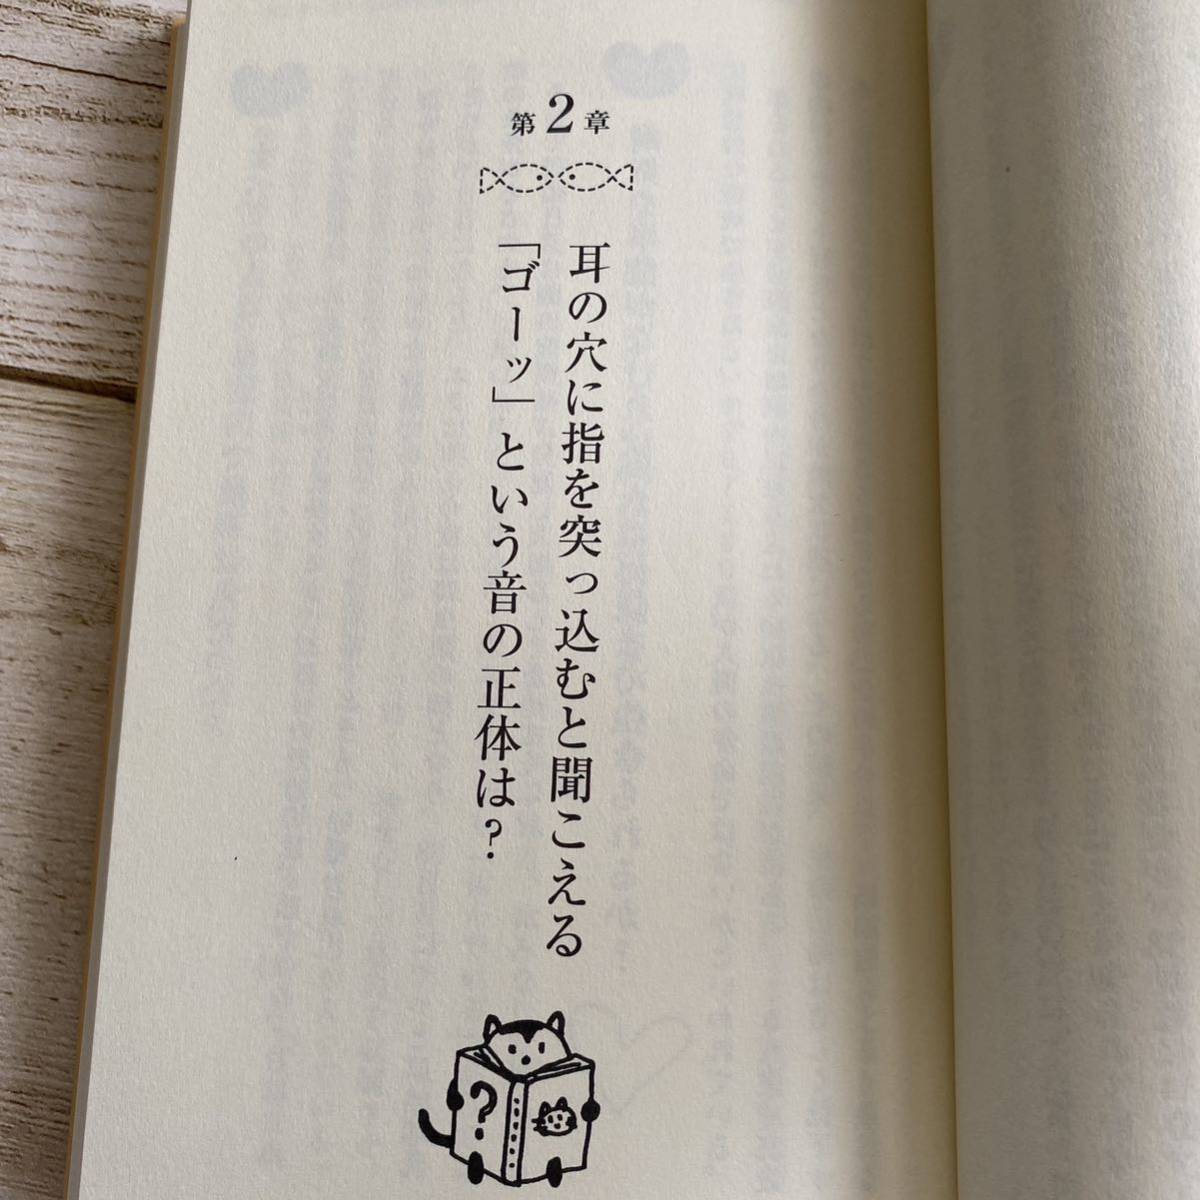 第2章
耳の穴に指を突っ込むと聞こえる
「ゴーッ」という音の正体は?
?